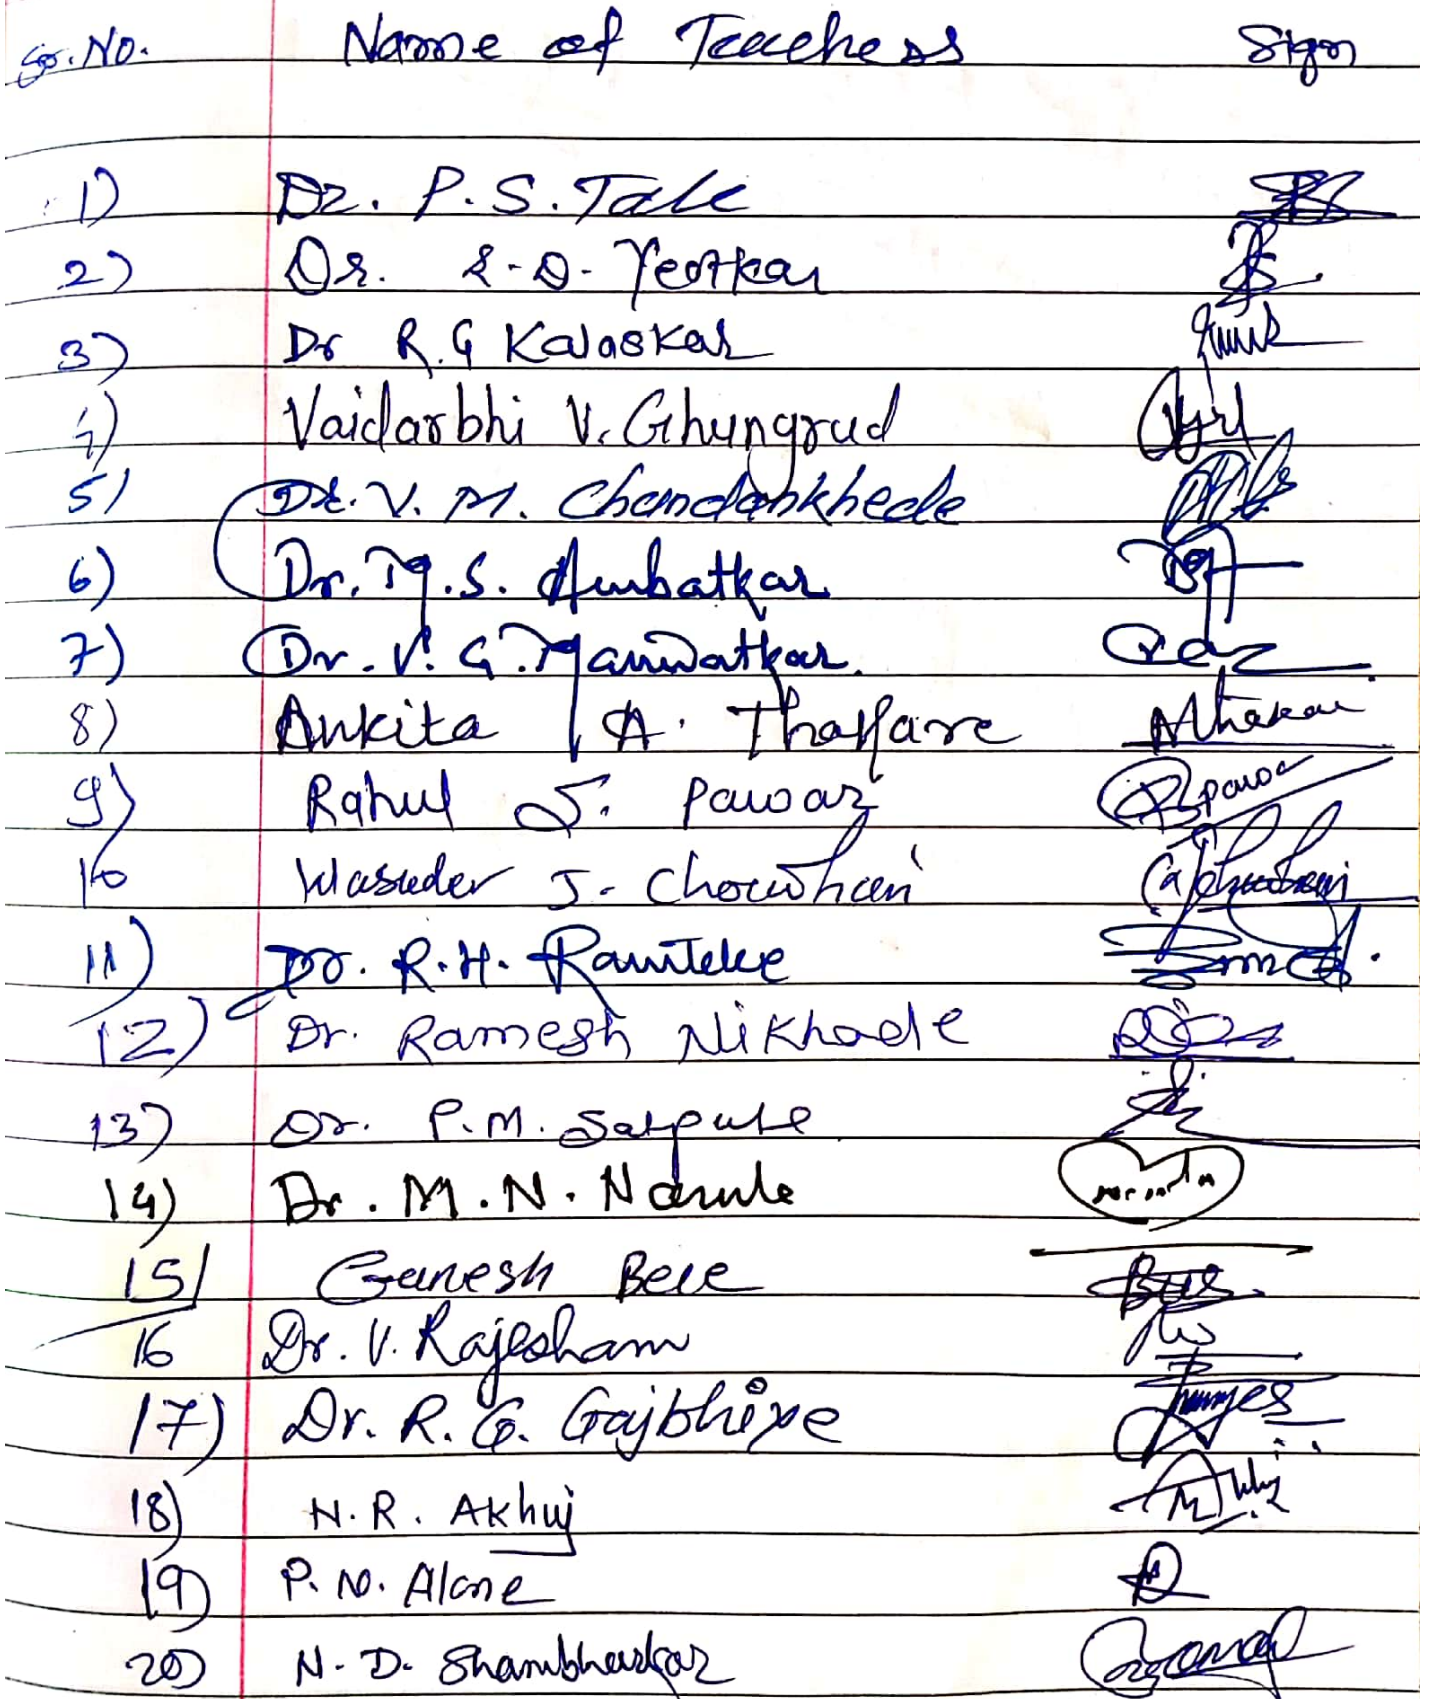 Sr. No. Name of Teachers Sign
1) Dr. P. S. Tale
2) Dr. S. D. Yeotkar
3) Dr R. G Kalaskar
4) Vaidarbhi V. Ghungrud
5) Dr. V. M. Chandankhede
6) Dr. M. S. Ambatkar
7) Dr. V. G. Manwatkar.
8) Ankita A. Thakare
9) Rahul S. Pawar
10 Wasudev J. Chowhan
11) Dr. R. H. Ramteke
12) Dr. Ramesh Nikhade
13) Dr. P. M. Satpute
14) Dr. M. N. Narule
15) Ganesh Bele
16 Dr. V. Rajesham
17) Dr. R. G. Gajbhiye
18) N. R. Akhuj
19) P. N. Alone
20) N. D. Shambharkar